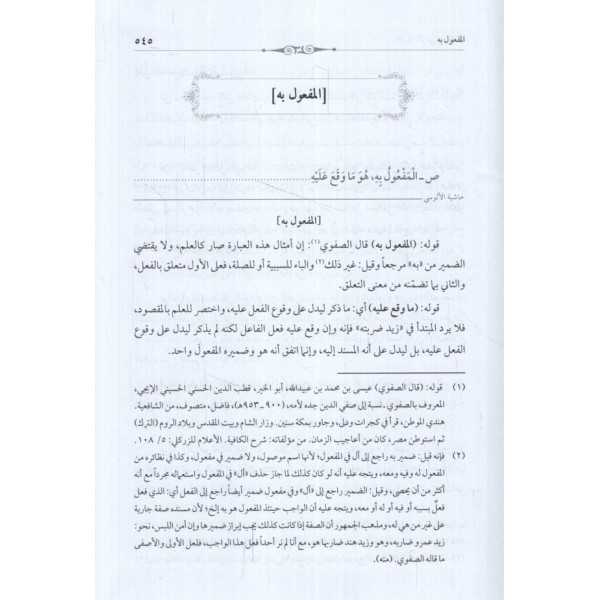 المفعول به
٥٤٥
[المفعول به]
ص - الْمَفْعُولُ بِهِ، هُوَ مَا وَقَعَ عَلَيْهِ ........................................
حاشية الألوسي
[المفعول به]
قوله: (المفعول به) قال الصفوي(١): إن أمثال هذه العبارة صار كالعلم، ولا يقتضي
الضمير من «به» مرجعاً وقيل: غير ذلك(٢) والباء للسببية أو للصلة، فعلى الأول متعلق بالفعل،
والثاني بما تضمّنه من معنى التعلق.
قوله: (ما وقع عليه) أي: ما ذكر ليدل على وقوع الفعل عليه، واختصر للعلم بالمقصود،
فلا يرد المبتدأ في «زيد ضربته» فإنه وإن وقع عليه فعل الفاعل لكنه لم يذكر ليدل على وقوع
الفعل عليه، بل ليدل على أنه المسند إليه، وإنما اتفق أنه هو وضميره المفعول واحد.
(١) قوله: (قال الصفوي) عيسى بن محمد بن عبيدالله، أبو الخير، قطب الدين الحسني الحسيني الإيجي،
المعروف بالصفوي ـ نسبة إلى صفي الدين جده لأمه، (٩٠٠ ـ ٩٥٣هـ)، فاضل، متصوف، من الشافعية.
هندي الموطن، قرأ في كجرات ودلي، وجاور بمكة سنين. وزار الشام وبيت المقدس وبلاد الروم (الترك)
ثم استوطن مصر، كان من أعاجيب الزمان. من مؤلفاته: شرح الكافية. الأعلام للزركلي: ٥/ ١٠٨.
(٢) فإنه قيل: ضمير به راجع إلى آل في المفعول؛ لأنها اسم موصول، ولا ضمير في مفعول، وكذا في نظائره من
المفعول له وفيه ومعه، ويتجه عليه أنه لو كان كذلك لما جاز حذف «آل» في المفعول واستعماله مجرداً مع أنه
أكثر من أن يحصى، وقيل: الضمير راجع إلى «آل» وفي مفعول ضمير أيضاً راجع إلى الفعل أي: الذي فعل
فعلٌ بسببه أو فيه أو له أو معه، ويتجه عليه أن الواجب حينئذ المفعول هو به إلخ؛ لأن مسنده صفة جارية
على غير من هي له، ومذهب الجمهور أن الصفة إذا كانت كذلك يجب إبراز ضميرها وإن أمن اللبس، نحو:
زيد عمرو ضاربه، هو وزيد هند ضاربها هو، مع أنا لم نر أحداً فعل هذا الواجب، فلعل الأولى والأصفى
ما قاله الصفوي. (منه).